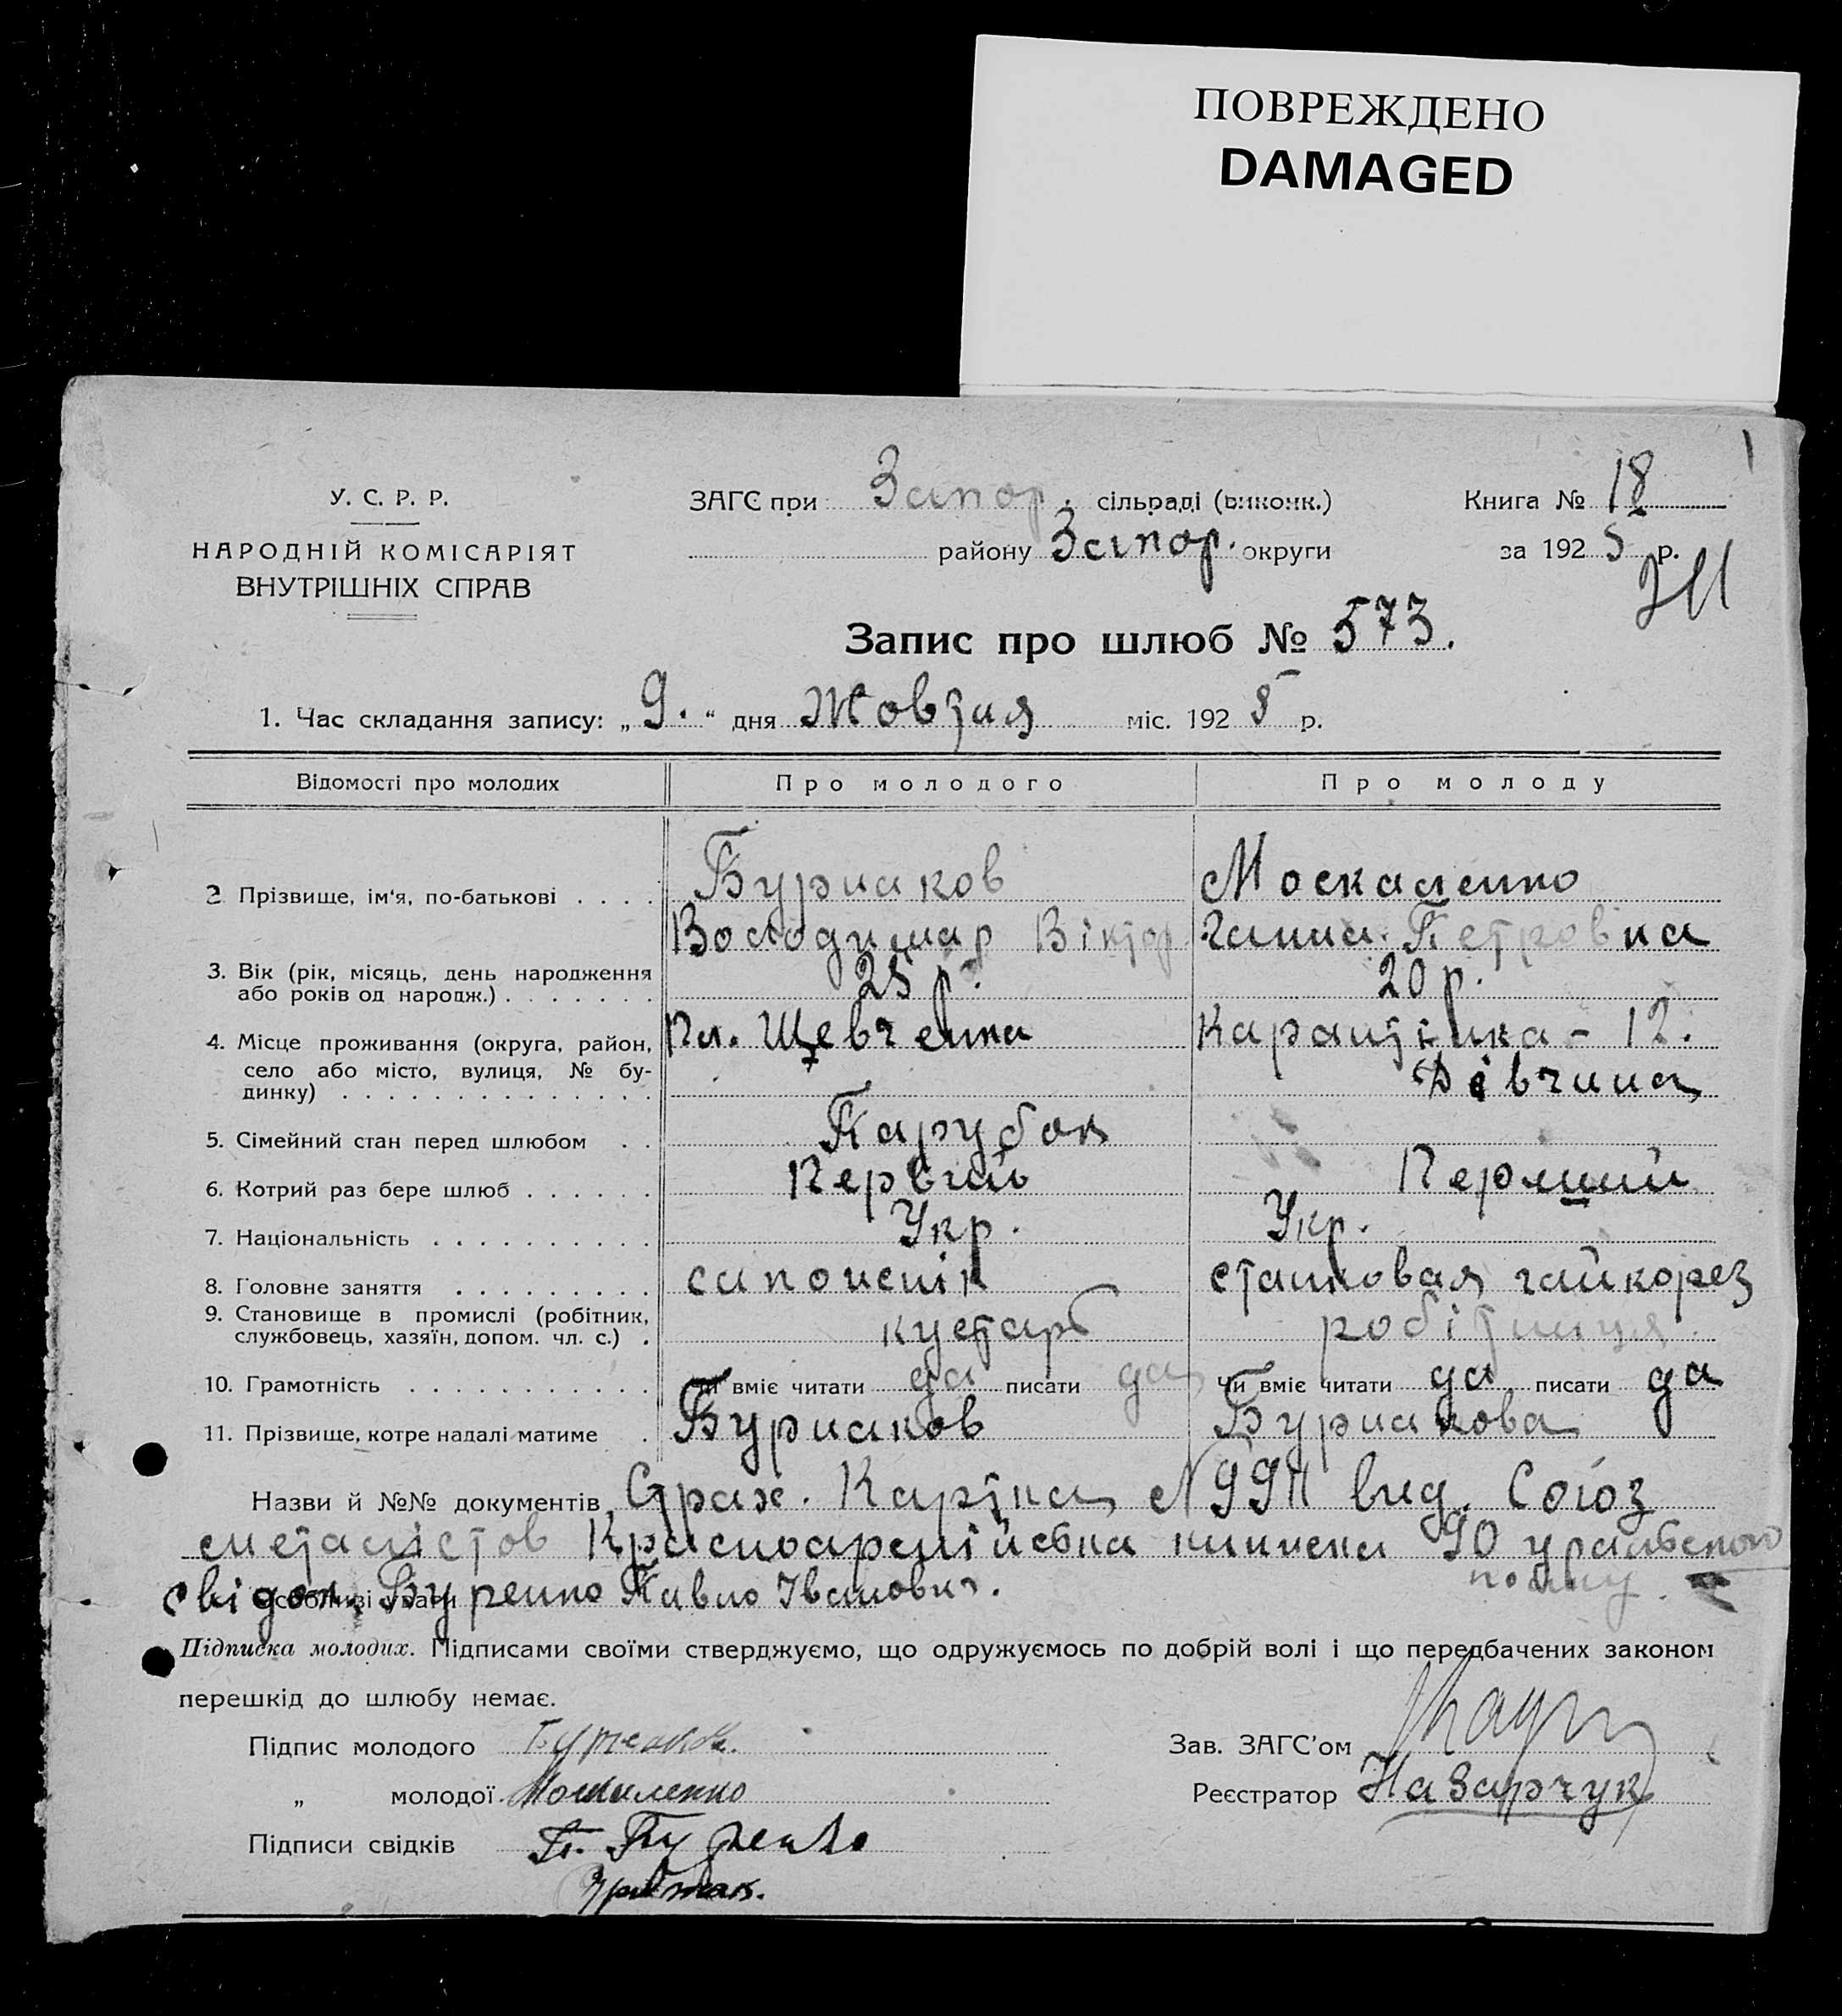 ПОВРЕЖДЕНО
DAMAGED
У. С. Р. Р.
НАРОДНІЙ КОМІСАРІЯТ
ВНУТРІШНІХ СПРАВ
ЗАГС при Запор. сільраді (виконк.)
району Запор. округи
Книга № 18
за 1925 р.
Запис про шлюб № 573.
1. Час складання запису: „9.“ дня Жовтня міс. 1925 р.
Відомості про молодих Про молодого Про молоду
2 Прізвище, ім'я, по-батькові . . . . Бурлаков Москаленко
Володимар Віктор. Ганна Петровна
3. Вік (рік, місяць, день народження
або років од народж.) . . . . . . . 25 р. 20 р.
4. Місце проживання (округа, район, Пл. Шевченка Карантінна - 12.
село або місто, вулиця, № бу-
динку) . . . . . . . . . . . . . . Дівчина
5. Сімейний стан перед шлюбом . . Парубок
6. Котрий раз бере шлюб . . . . . . Первий Перший
7. Національність . . . . . . . . . . Укр. Укр.
8. Головне заняття . . . . . . . . . сапожнік гайкорез
9. Становище в промислі (робітник,
службовець, хазяїн, допом. чл. с.) . кустарь робітниця
10. Грамотність . . . . . . . . . . . Чи вміє читати да писати да Чи вміє читати да писати да
11. Прізвище, котре надалі матиме . Бурлаков Бурлакова
Назви й №№ документів Страх. Картка № вид. Союз
метал­істов Красноармійська книжка 90 уральского
полку.
Особливі уваги Свідок Буренко Павло Іванович.
Підписка молодих. Підписами своїми стверджуємо, що одружуємось по добрій волі і що передбачених законом
перешкід до шлюбу немає.
Підпис молодого Зав. ЗАГС'ом
„ молодої Москаленко Реєстратор Назарчук
Підписи свідків П. Буренко